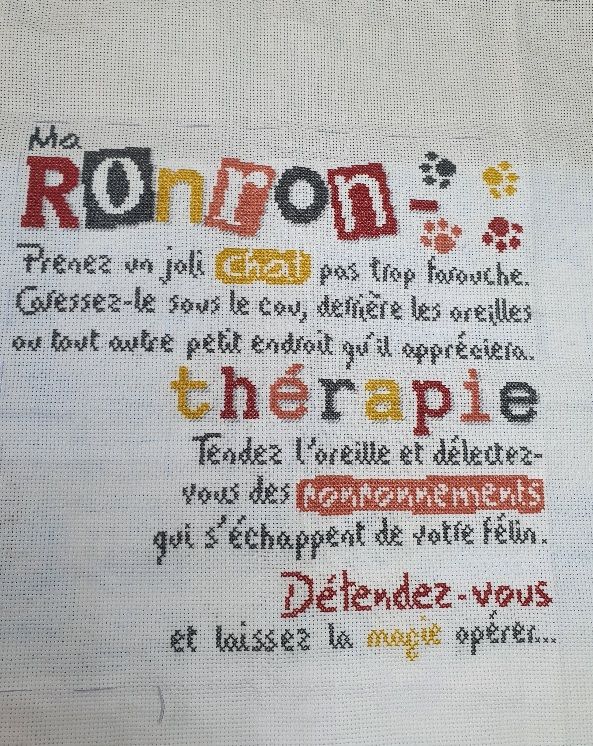 Ma
Ronron-
Prenez un joli chat pas trop farouche.
Caressez-le sous le cou, derrière les oreilles
ou tout autre petit endroit qu'il appréciera.
thérapie
Tendez l'oreille et délectez-
vous des ronronnements
qui s'échappent de votre félin.
Détendez-vous
et laissez la magie opérer...